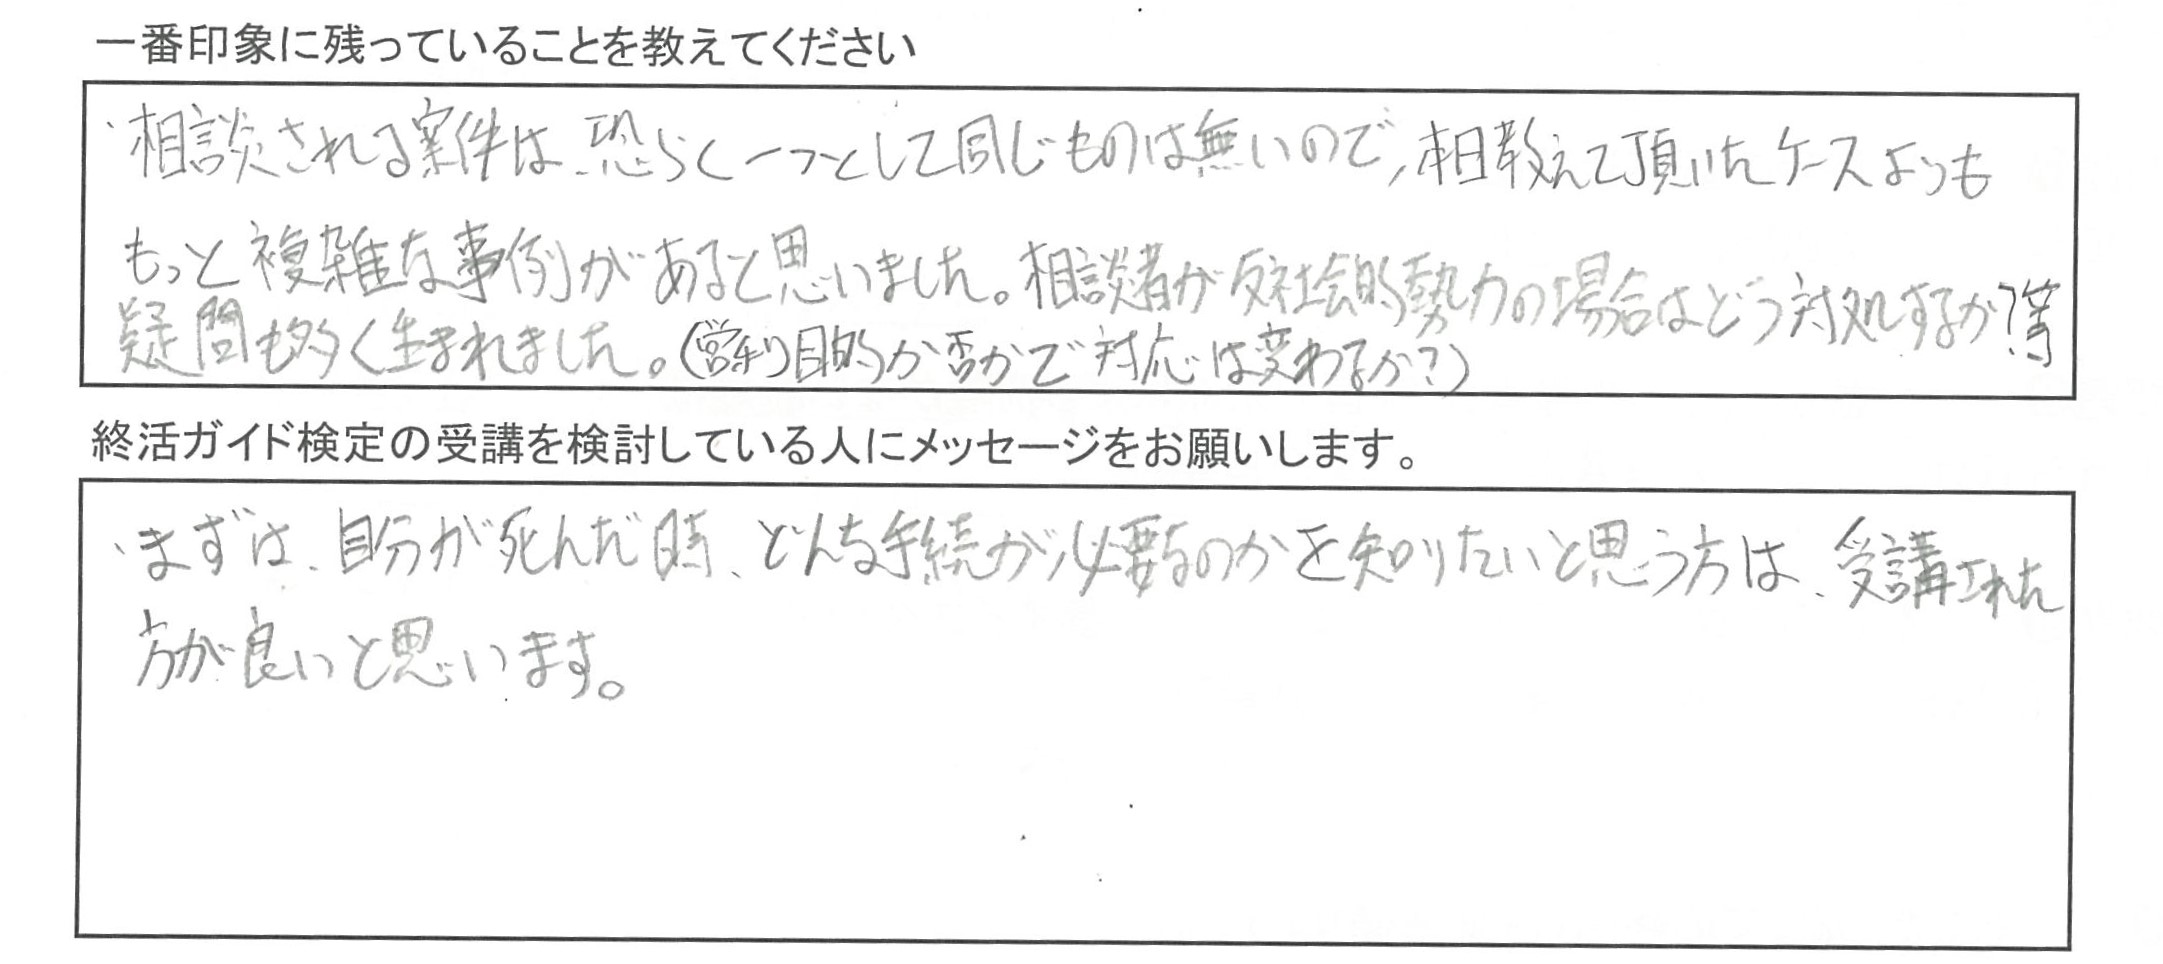 一番印象に残っていることを教えてください
・相談される案件は、恐らく一つとして同じものは無いので、本日教えて頂いたケースよりも
もっと複雑な事例があると思いました。相談者が反社会的勢力の場合はどう対処するか?等
疑問も多く生まれました。(営利目的か否かで対応は変わるか?)
終活ガイド検定の受講を検討している人にメッセージをお願いします。
・まずは、自分が死んだ時、どんな手続が必要なのかを知りたいと思う方は、受講された
方が良いと思います。